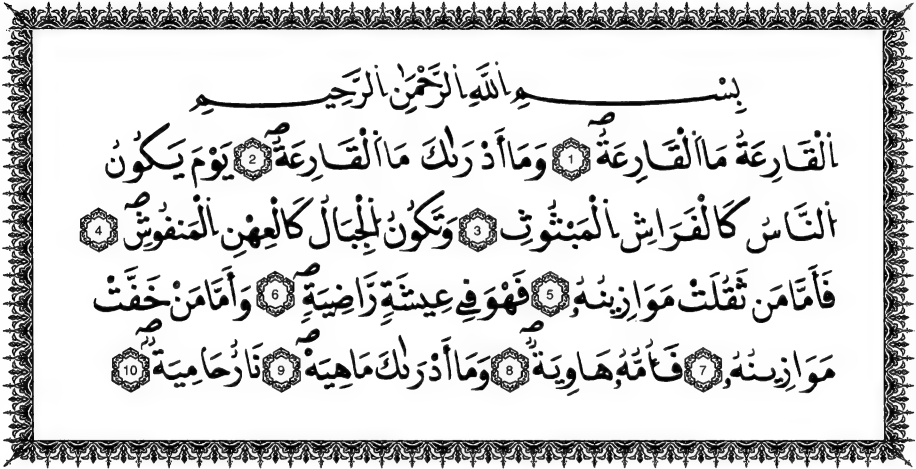 بِسْمِ اللَّهِ الرَّحْمَٰنِ الرَّحِيمِ
اِ۬لْقَارِعَةُ مَا اَ۬لْقَارِعَةُۖ 1 وَمَا أَدْر۪ىٰكَ مَا اَ۬لْقَارِعَةُۖ 2 يَوْمَ يَكُونُ
اُ۬لنَّاسُ كَالْفَرَاشِ اِ۬لْمَبْثُوثِ 3 وَتَكُونُ اُ۬لْجِبَالُ كَالْعِهْنِ اِ۬لْمَنفُوشِۖ 4
فَأَمَّا مَن ثَقُلَتْ مَوَازِينُهُۥ 5 فَهْوَ فِي عِيشَةٍ رَّاضِيَةٍۖ 6 وَأَمَّا مَنْ خَفَّتْ
مَوَازِينُهُۥ 7 فَأُمُّهُۥ هَاوِيَةٌۖ 8 وَمَا أَدْر۪ىٰكَ مَا هِيَهْۖ 9 نَارٌ حَامِيَةٌۖ 10